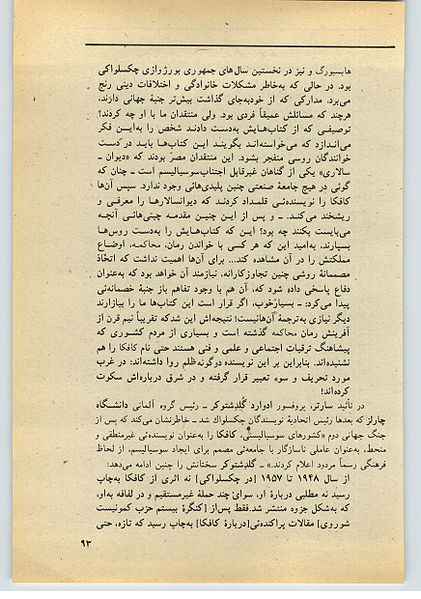 هابسبورگ و نیز در نخستین سال‌های جمهوری بورژوازی چکسلواکی
بود. در حالی که به‌خاطر مشکلات خانوادگی و اختلافات دینی رنج
می‌برد. مدارکی که از خود به‌جای گذاشت بیش‌تر جنبهٔ جهانی دارند،
هرچند که مسائلش عمیقاً فردی بود. ولی منتقدان ما با او چه کردند؟
توصیفی که از کتاب‌هایش به‌دست دادند شخص را به‌این فکر
می‌اندازد که می‌خواسته‌اند بگویند این کتاب‌ها باید در دست
خوانندگان روسی منفجر بشود. این منتقدان مصر بودند که «دیوان ـ
سالاری» یکی از گناهان غیرقابل اجتناب سوسیالیسم است ـ چنان که
گوئی در هیچ جامعهٔ صنعتی چنین پلیدی‌هائی وجود ندارد. سپس آن‌ها
کافکا را نویسنده‌ئی قلمداد کردند که دیوانسالارها را معرفی و
ریشخند می‌کند. ـ و پس از این چنین مقدمه چینی‌هائی آنچه
می‌بایست بکنند چه بود؟ این که کتاب‌هایش را به‌دست روس‌ها
بسپارند، به‌امید این که هر کسی با خواندن رمان، محاکمه، اوضاع
مملکتش را در آن مشاهده کند... برای آن‌ها اهمیت نداشت که اتخاذ
مصممانهٔ روشی چنین تجاوزکارانه، نیازمند آن خواهد بود که به‌عنوان
دفاع پاسخی داده شود که، آن هم با وجود تفاهم باز جنبهٔ خصمانه‌ئی
پیدا می‌کرد: ـ بسیارخوب، اگر قرار است این کتاب‌ها ما را بیازارند
دیگر نیازی به‌ترجمهٔ آن‌هانیست! نتیجه‌اش این شدکه تقریباً نیم قرن از
آفرینش رمان محاکمه گذشته است و بسیاری از مردم کشوری که
پیشاهنگ ترقیات اجتماعی و علمی و فنی هستند حتی نام کافکا را هم
نشنیده‌اند. بنابراین بر این نویسنده دوگونه ظلم روا داشته‌اند: در غرب
مورد تحریف و سوء تعبیر قرار گرفته و در شرق درباره‌اش سکوت
کرده‌اند!
در تأئید سارتر، پروفسور ادوارد گلدشتوکر ـ رئیس گروه آلمانی دانشگاه
چارلز که بعدها رئیس اتحادیهٔ نویسندگان چکسلواک شد ـ خاطرنشان می‌کند که پس از
جنگ جهانی دوم «کشورهای سوسیالیستی، کافکا را به‌عنوان نویسنده‌ئی غیرمنطقی و
منحط، به‌عنوان عاملی ناسازگار با جامعه‌ئی مصمم برای ایجاد سوسیالیسم، از لحاظ
فرهنگی رسماً مردود اعلام کردند.» ـ گلدشتوکر سخنانش را چنین ادامه می‌دهد:
از سال ۱۹۴۸ تا ۱۹۵۷ [در چکسلواکی] نه اثری از کافکا به‌چاپ
رسید نه مطلبی دربارهٔ او، سوای چند حملهٔ غیرمستقیم و در لفافه به‌او،
که به‌شکل جزوه منتشر شد. فقط پس از [کنگرهٔ بیستم حزب کمونیست
شوروی] مقالات پراکنده‌ئی [دربارهٔ کافکا] به‌چاپ رسید که تازه، حتی
۹۳